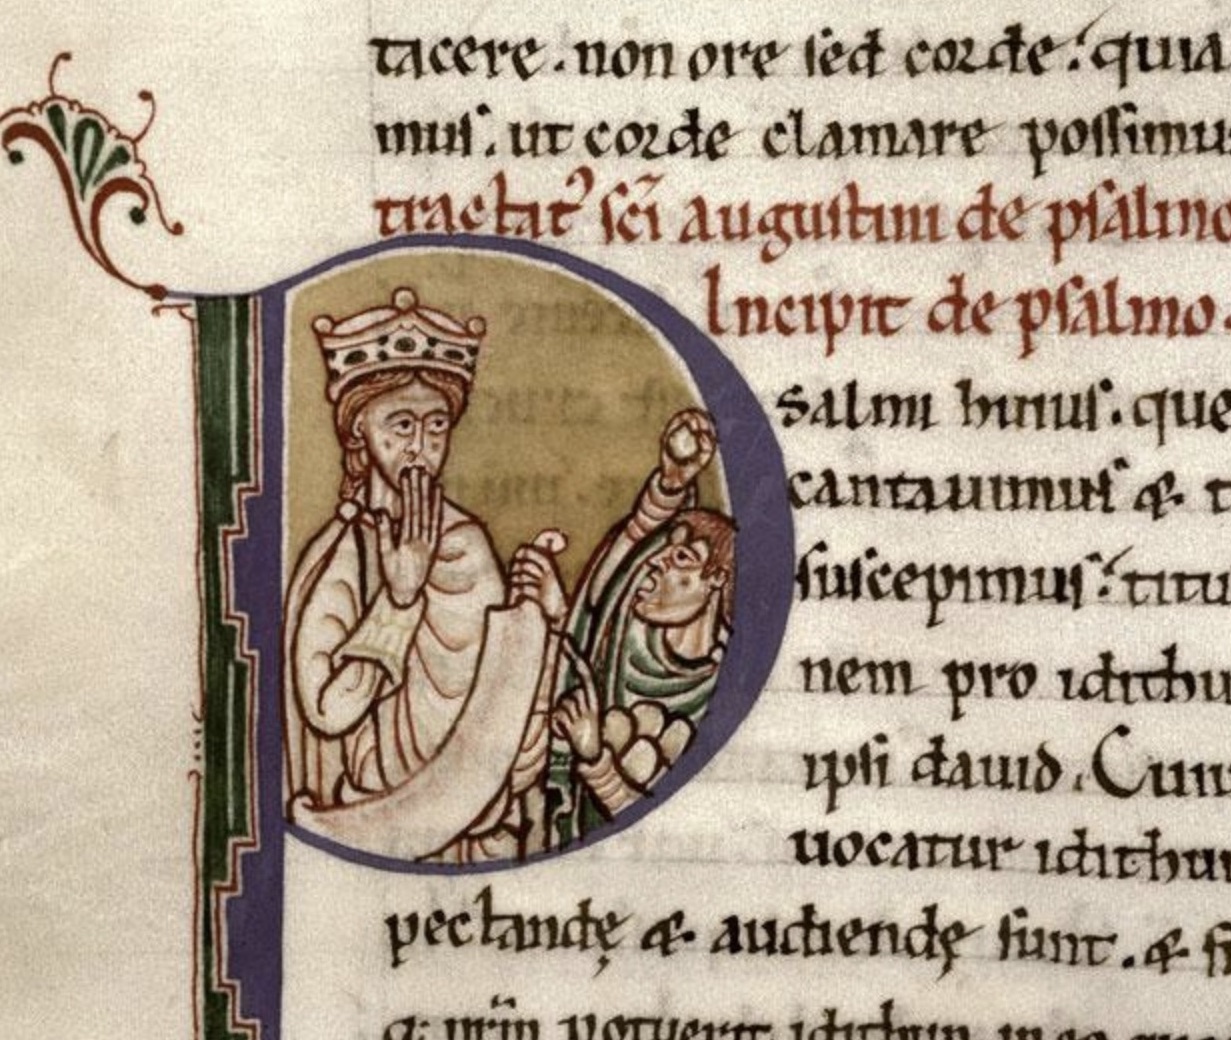 tacere. non ore sed corde: quia
mus. ut corde clamare possimu
tractat᷒ sc̄i augustini de psalmo
Incipit de psalmo
Psalmi huius. que
cantauimus & t
suscepimus: titu
nem pro idithu
ipsi dauid. Cum
uocatur idithu
pectandę & audiendę sunt. & s